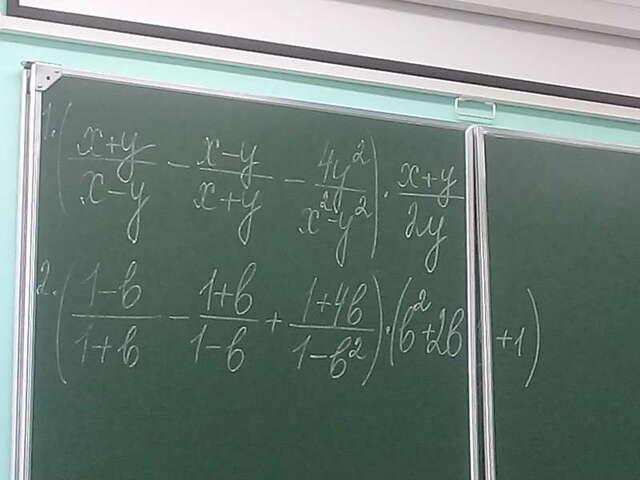 1. ((x+y)/(x-y) - (x-y)/(x+y) - 4y²/(x²-y²)) · (x+y)/2y
2. ((1-b)/(1+b) - (1+b)/(1-b) + (1+4b)/(1-b²)) · (b²+2b+1)